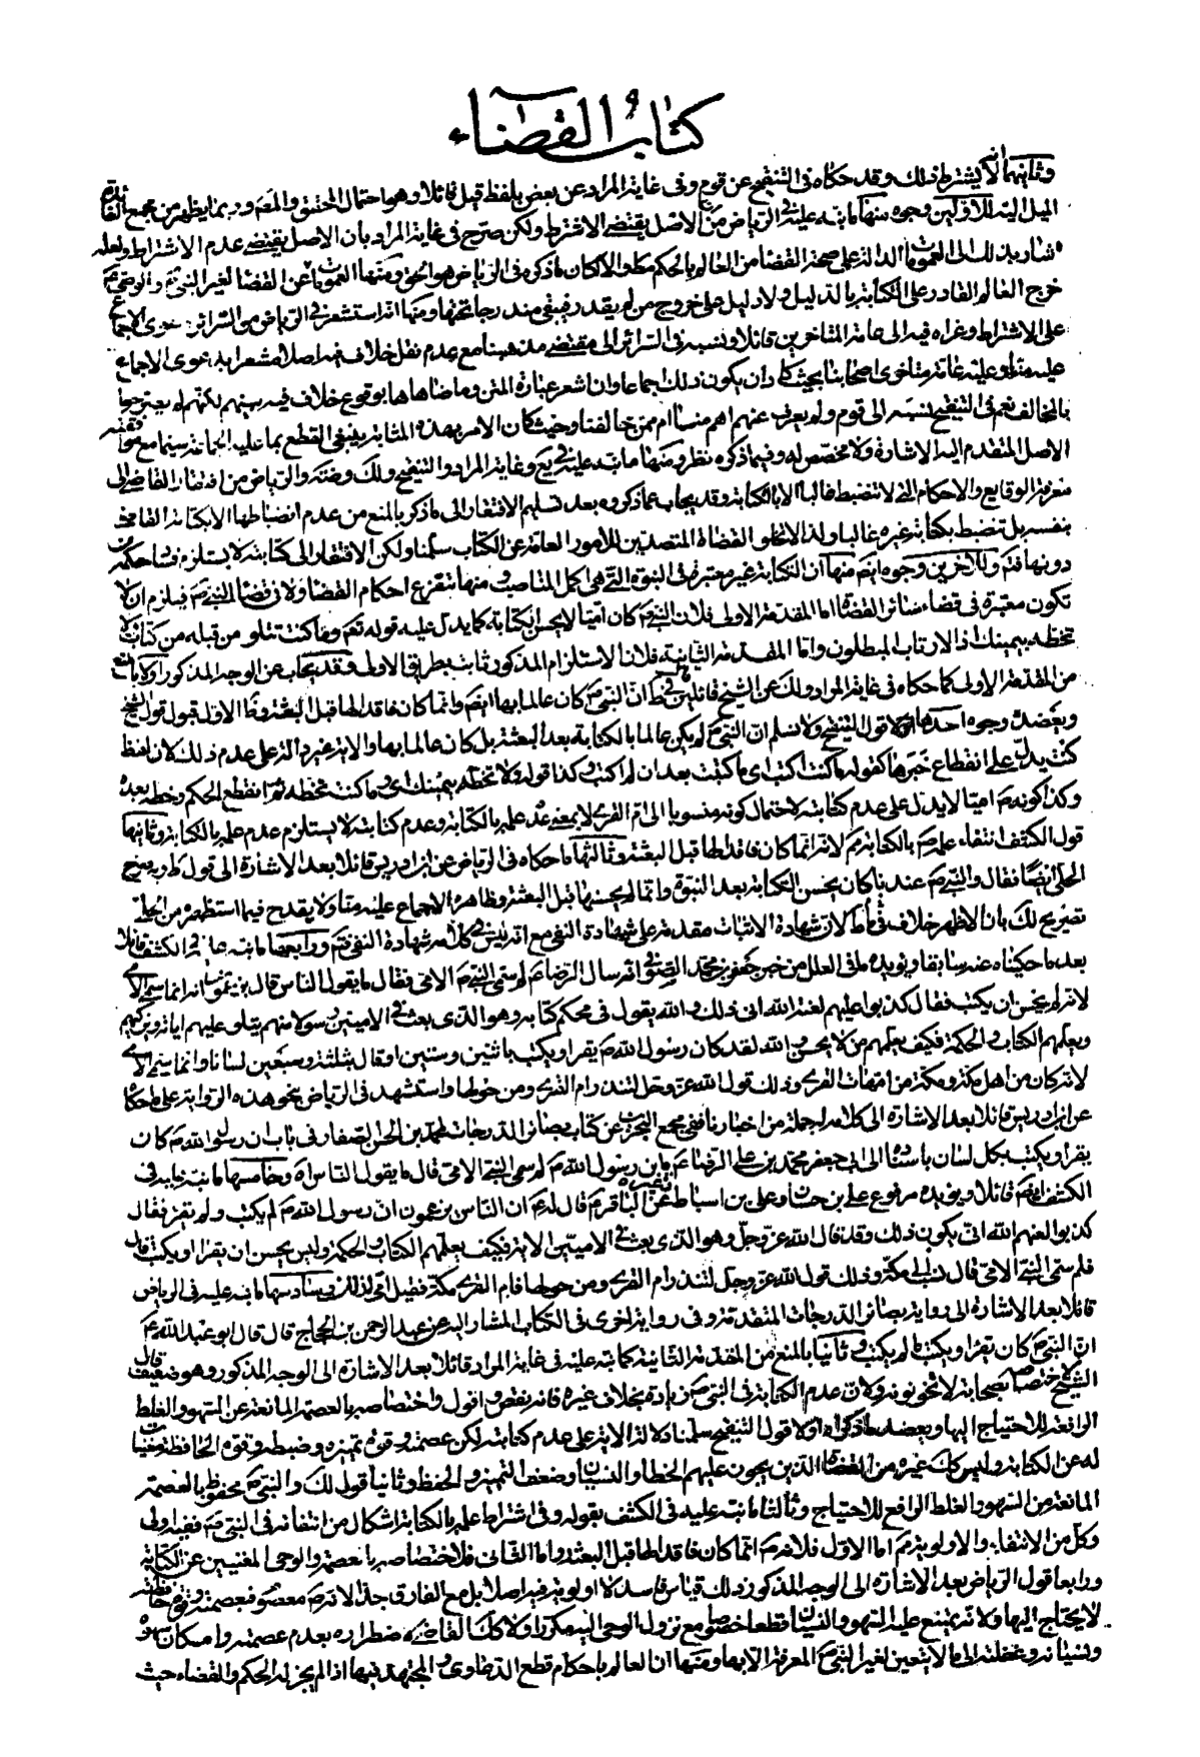 كتاب القضاء
وثانيهما انه لا يشترط ذلك وقد حكاه فى التنقيح عن قوم وفى غاية المراد عن بعض بلفظ قيل قائلا وهو احتمال المحقق والمصـ وربما يظهر من مجمع الفائدة
الميل اليه للاولين وجوه منها ما نبه عليه فى الرياض من ان الاصل يقتضى الاشتراط ولكن صرح فى غاية المراد بان الاصل يقتضى عدم الاشتراط ولعله
اشار بذلك الى العمومات الدالة على صحة القضا من العالم بالحكم مطـ والا لكان ما ذكره فى الرياض هو الحق ومنها العمومات عن القضا لغير النبى ص والوصى ع
خرج العالم القادر على الكتابة بالدليل ولا دليل على خروج من لم يقدر فيبقى مندرجا تحتها ومنها انه استشعر فى الرياض من السرائر دعوى الاجماع
على الاشتراط وعزاه فيه الى عامة المتاخرين قائلا ونسبه فى السرائر الى مقتضى مذهبنا مع عدم نقل خلاف فيه اصلا مشعرا بدعوى الاجماع
عليه منا وعليه عامة متاخرى اصحابنا بحيث كاد ان يكون ذلك اجماعا وان اشعر عبارة المتن وما ضاهاها بوقوع خلاف فيه بينهم لكنهم لم يصرحوا
بالمخالف نعم فى التنقيح نسبه الى قوم ولم يعرف عنهم اهم منا ام ممن خالفنا وحيث كان الامر بهذه المثابة ينبغى القطع بما عليه الجماعة سيما مع موافقته
الاصل المتقدم اليه الاشارة ولا مخصص له وفيما ذكره نظر ومنها ما نبه عليه فى يع وغاية المراد والتنقيح ولك وضه والرياض من افتقار القاضى الى
معرفة الوقايع والاحكام التى لا تنضبط غالبا الا بالكتابة وقد يجاب عما ذكروه بعد تسليم الافتقار الى ما ذكر بالمنع من عدم انضباطها الا بكتابة القاضى
بنفسه بل تنضبط بكتابة غيره غالبا ولذا لا تخلو القضاة المتصدين للامور العامة عن الكتاب سلمنا ولكن الافتقار الى كتابته لا يستلزم فساد حكمه من
دونها فتم وللاخرين وجوه ايضـ منها ان الكتابة غير معتبرة فى النبوة التى هى اكمل المناصب ومنها تتفرع احكام القضا ولا فى قضا النبى ص فيلزم ان لا
تكون معتبرة فى قضاء سائر القضاة اما المقدمة الاولى فلان النبى ص كان اميا لا يحسن الكتابة كما يدل عليه قوله تعم وما كنت تتلو من قبله من كتاب ولا
تخطه بيمينك اذا لارتاب المبطلون واما المقدمة الثانية فلان الاستلزام المذكور ثابت بطريق الاولى وقد يجاب عن الوجه المذكور اولا بالمنع
من المقدمة الاولى كما حكاه فى غاية المراد ولك عن الشيخ قائلين فى ط ان النبى ص كان عالما بها ايضـ وانما كان فاقدا لها قبل البعثة وهذا الاول قبول قول الشيخ
ويعضده وجوه احدها اولا قول التنقيح ولا نسلم ان النبى ص لم يكن عالما بالكتابة بعد البعثة بل كان عالما بها والاية غير دالة على عدم ذلك لان لفظ
كنت يدل على انقطاع خبرها كقوله ما كنت اكتب اى ما كتبت بعد ان لم اكتب وكذا قوله ولا تخطه بيمينك اى وما كنت تخطه ثم انقطع الحكم وخطه بعده
وكذا كونه ص اميا لا يدل على عدم كتابته لاحتمال كونه منسوبا الى ام القرى لا بمعنى عدم علمه بالكتابة وعدم كتابته لا يستلزم عدم علمه بالكتابة وثانيها
قول الكشف انتفاء علمه ص بالكتابة مم لانه انما كان فاقدا لها قبل البعثة وثالثها ما حكاه فى الرياض عن ابن ادريس قائلا بعد الاشارة الى قول ط وبه صرح
الحلى ايضا فقال والنبى ص عندنا كان يحسن الكتابة بعد النبوة وانما لم يحسنها قبل البعثة وظاهره الاجماع عليه منا ولا يقدح فيما استظهره من الحلى
تصريح لك بان الاظهر خلاف فى ط لان شهادة الاثبات مقدمة على شهادة النفى مع انه ليس فى كلامه شهادة النفى فتم ورابعها ما نبه عليه فى الكشف قائلا
بعد ما حكيناه عنه سابقا ويؤيده ما فى العلل من خبر جعفر بن محمد الصوفى انه سال الرضا ع لم سمى النبى ص الامى فقال ما يقول الناس قال يزعمون انه انما سمى الامى
لانه لم يحسن ان يكتب فقال كذبوا عليهم لعنة الله انى ذلك والله يقول فى محكم كتابه وهو الذى بعث فى الاميين رسولا منهم يتلو عليهم اياته ويزكيهم
ويعلمهم الكتاب والحكمة فكيف يعلمهم من لا يحسن والله لقد كان رسول الله ص يقرا ويكتب باثنين وستين او قال بثلثة وسبعين لسانا وانما سمى الامى
لانه كان من اهل مكة ومكة من امهات القرى وذلك قول الله عز وجل لتنذر ام القرى ومن حولها واستشهد فى الرياض بنحو هذه الرواية على ما حكاه
عن ابن ادريس قائلا بعد الاشارة الى كلامه جملة من اخبارنا ففى مجمع البحرين عن كتاب بصائر الدرجات لمحمد بن الحسن الصفار فى باب ان رسول الله ص كان
يقرا ويكتب بكل لسان باسناده الى ابى جعفر محمد بن على الرضا ع يا بن رسول الله ص لم سمى النبى الامى قال ما يقول الناس اه وخامسها ما نبه عليه فى
الكشف ايضـ قائلا ويؤيده مرفوع على بن حسان وعلى بن اسباط وغيره عن الباقر ع قال له ع ان الناس يزعمون ان رسول الله ص لم يكتب ولم يقرا فقال
كذبوا لعنهم الله انى يكون ذلك وقد قال الله عز وجل وهو الذى بعث فى الاميين الاية فكيف يعلمهم الكتاب والحكمة وليس يحسن ان يقرا او يكتب قال
فلم سمى النبى الامى قال نسب الى مكة وذلك قول الله عز وجل لتنذر ام القرى ومن حولها فام القرى مكة فقيل امى لذلك وسادسها ما نبه عليه فى الرياض
قائلا بعد الاشارة الى رواية بصائر الدرجات المتقدمة وفى رواية اخرى فى الكتاب المشار اليه عن عبد الرحمن بن الحجاج قال قال ابو عبد الله ع
ان النبى ص كان يقرا ويكتب ما لم يكتب وثانيا بالمنع من المقدمة الثانية كما نبه عليه فى غاية المراد قائلا بعد الاشارة الى الوجه المذكور وهو ضعيف قال
الشيخ لاختصاصه بصحابة لا يخونونه ولان عدم الكتابة فى النبى ص زيادة بخلاف غيره فانه نقص واقول واختصاصه بالعصمة المانعة عن السهو والغلط
الرافعة للاحتياج اليها ويعضد ما ذكراه اولا قول التنقيح سلمنا دلالة الاية على عدم كتابته لكن عصمته وقوة تميزه وضبطه وقوة الحافظة مغنيات
له عن الكتابة وليس كك غيره من القضاة الذين يجوز عليهم الخطا والنسيان وضعف التميز والحفظ وثانيا قول لك والنبى ص محفوظ بالعصمة
المانعة من السهو والغلط الرافع للاحتياج وثالثا ما نبه عليه فى الكشف بقوله وفى اشتراط علمه بالكتابة اشكال من انتفائه فى النبى ص ففيه اولى
وكل من الانتفاء والاولوية مم اما الاول فلانه ص انما كان فاقدا لها قبل البعثة واما الثانى فلاختصاصه بالعصمة والوحى المغنيين عن الكتابة
ورابعا قول الرياض بعد الاشارة الى الوجه المذكور وذلك قياس فاسد لا اولوية فيه اصلا بل مع الفارق جدا لانه ص معصوم فبعصمته وقوة حافظته
لا يحتاج اليها ولانه يمتنع عليه السهو والنسيان قطعا خصوصا مع نزول الوحى اليه مكررا ولا كك القاضى لاضطراره بعدم عصمته وامكان سهوه
ونسيانه وغفلته الى ما لا يتعين لغير النبى ص المعرفة الا بها ومنها ان العالم باحكام قطع الدعاوى والمجتهد فيها اذا لم يجز له الحكم والقضاء حيث